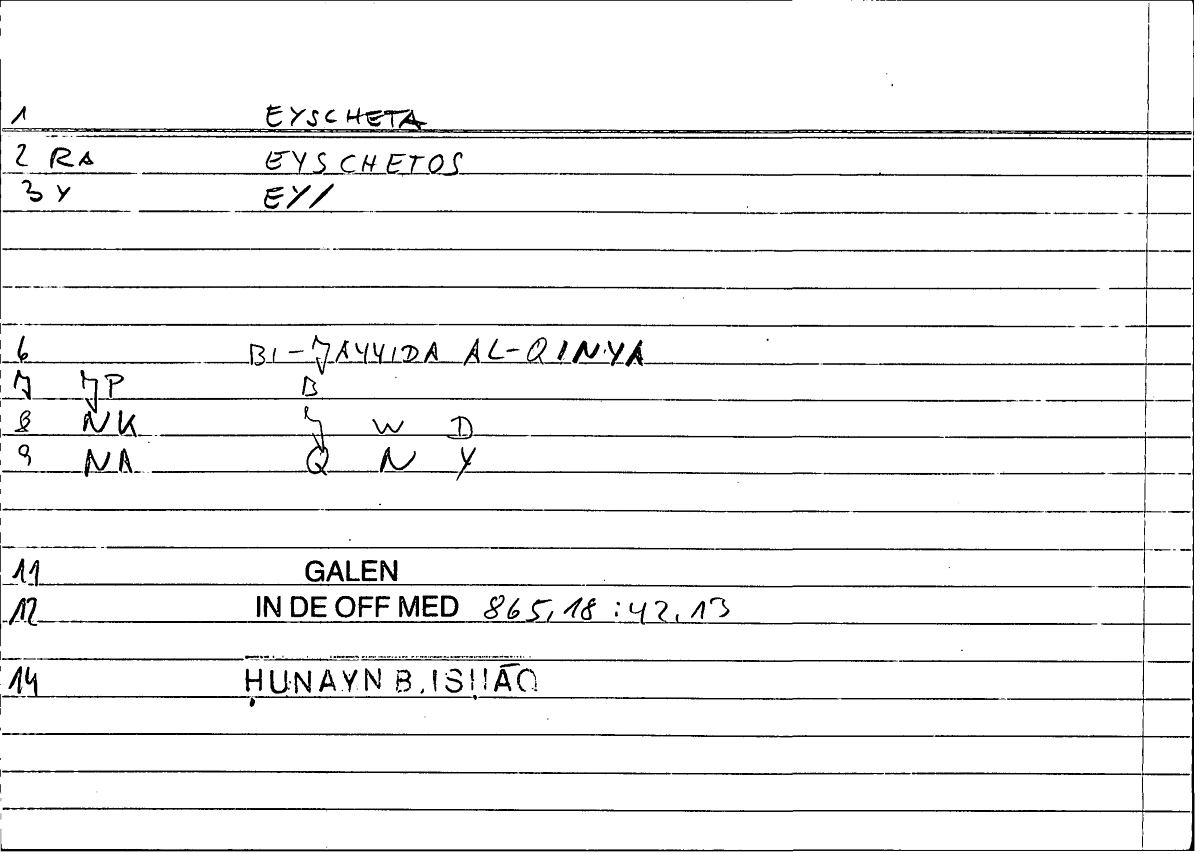 1 EYSCHETA
2 RA EYSCHETOS
3 Y EY/
6 BI-JAYYIDA AL-QINYA
7 JP B
8 NK J W D
9 NA Q N Y
11 GALEN
12 IN DE OFF MED 865,18:42,13
14 ḤUNAYN B. ISḤĀQ